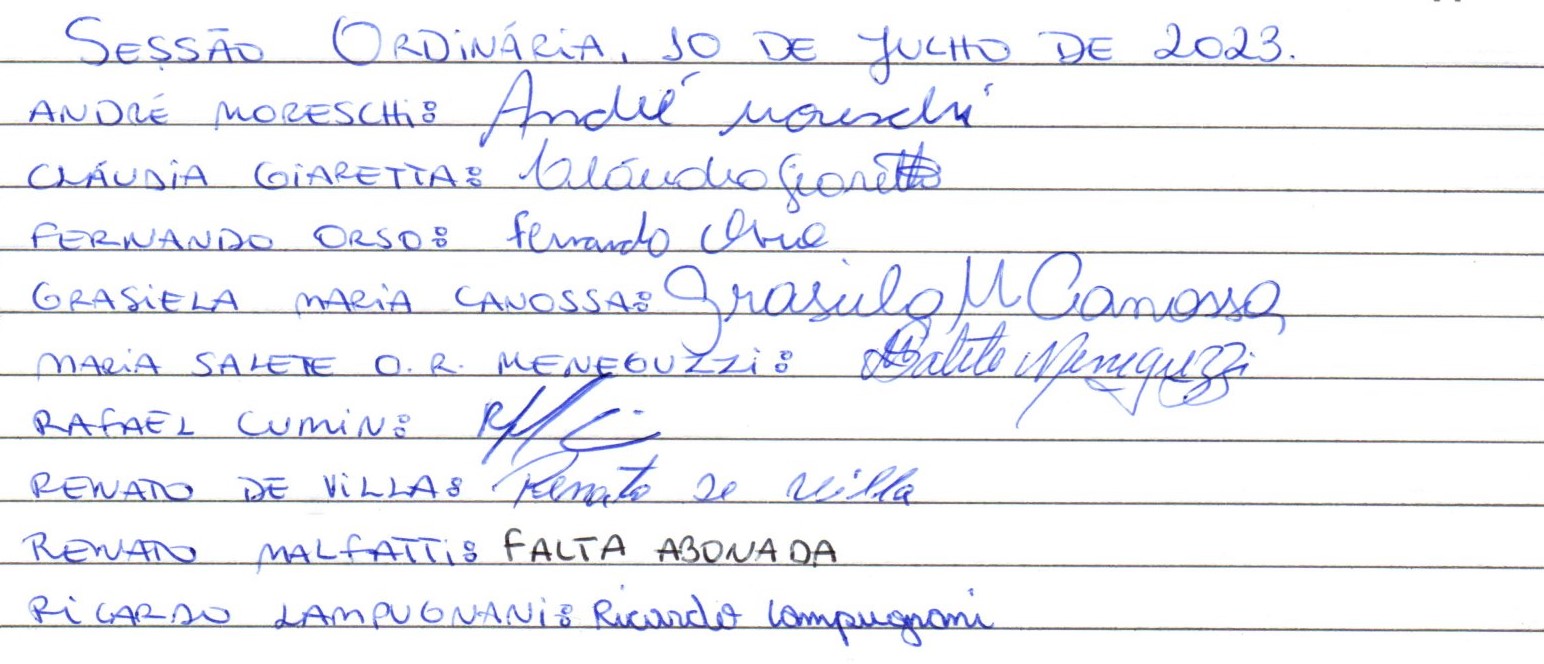 SESSÃO ORDINÁRIA, 10 DE JULHO DE 2023.
ANDRÉ MORESCHI: André Moreschi
CLÁUDIA GIARETTA: Cláudia Giaretta
FERNANDO ORSO: Fernando Orso
GRASIELA MARIA CANOSSA: Grasiela M Canossa
MARIA SALETE O. R. MENEGUZZI: MSalete Meneguzzi
RAFAEL CUMIN:
RENATO DE VILLA: Renato De Villa
RENATO MALFATTI: FALTA ABONADA
RICARDO LAMPUGNANI: Ricardo Lampugnani